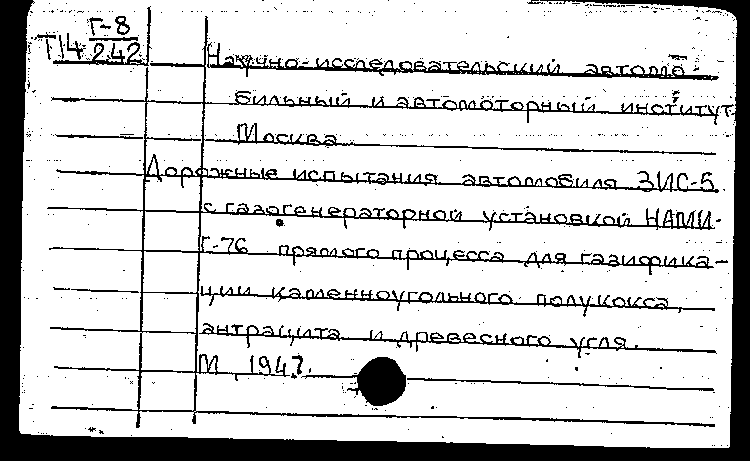 Г-8
Т14 242
Научно-исследовательский автомо-
бильный и автомоторный институт
Москва.
Дорожные испытания автомобиля ЗИС-5
с газогенераторной установкой НАМИ-
Г-76 прямого процесса для газифика-
ции каменноугольного полукокса,
антрацита и древесного угля.
М, 1947.